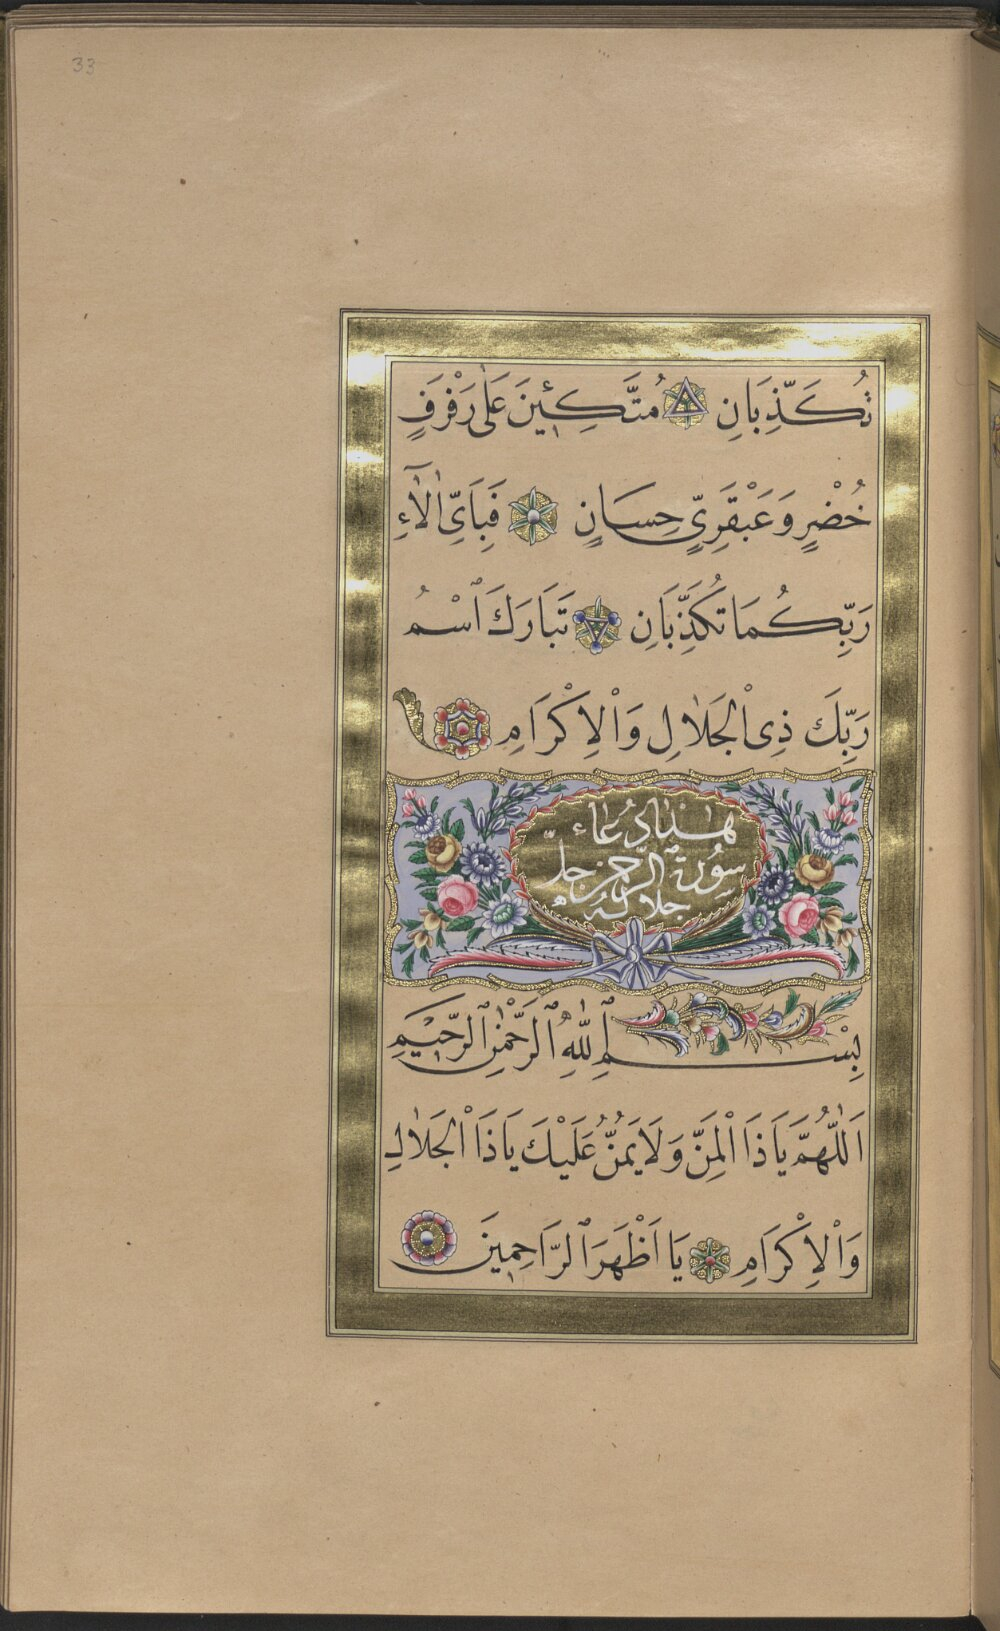 33
تُكَذِّبَانِ مُتَّكِئِينَ عَلٰى رَفْرَفٍ
خُضْرٍ وَعَبْقَرِيٍّ حِسَانٍ فَبِاَيِّ اٰلَآءِ
رَبِّكُمَا تُكَذِّبَانِ تَبَارَكَ ٱسْمُ
رَبِّكَ ذِى ٱلْجَلَالِ وَاْلاِكْرَامِ
هٰذَا دُعَاء
سُورَة ٱلرَّحْمٰن جلّ
جلاله
بِسْمِ ٱللّٰهِ ٱلرَّحْمٰنِ ٱلرَّحِيمِ
اَللّٰهُمَّ يَا ذَا الْمَنِّ وَلَا يَمُنُّ عَلَيْكَ يَا ذَا الْجَلَالِ
وَاْلاِكْرَامِ يَا اَظْهَرَ ٱلرَّاحِمِينَ